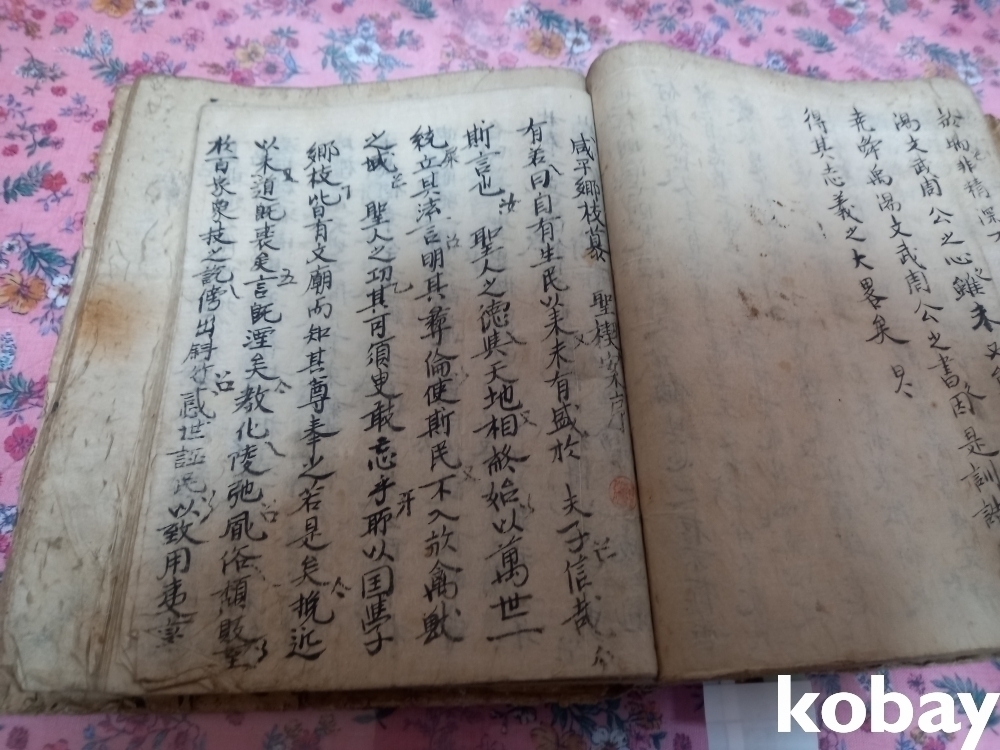 訟嗚非精深
湯文武周公之心雖未必
堯舜禹湯文武周公之書因是訓誥
得其志義之大畧矣
咸平鄕校募 聖樓案序
有若曰自有生民以來未有盛於 夫子信哉
斯言也 聖人之德與天地相終始以萬世一
統立其法言明其彛倫使斯民不入於禽獸
之域 聖人之功其可須臾敢忘乎耶以国學
鄕校皆有文廟而知其尊奉之若是矣挽近
以来道旣衰矣言旣湮矣敎化陵弛風俗頹敗至
於百家衆技之說傍出 惑世誣民以致用夷
kobay